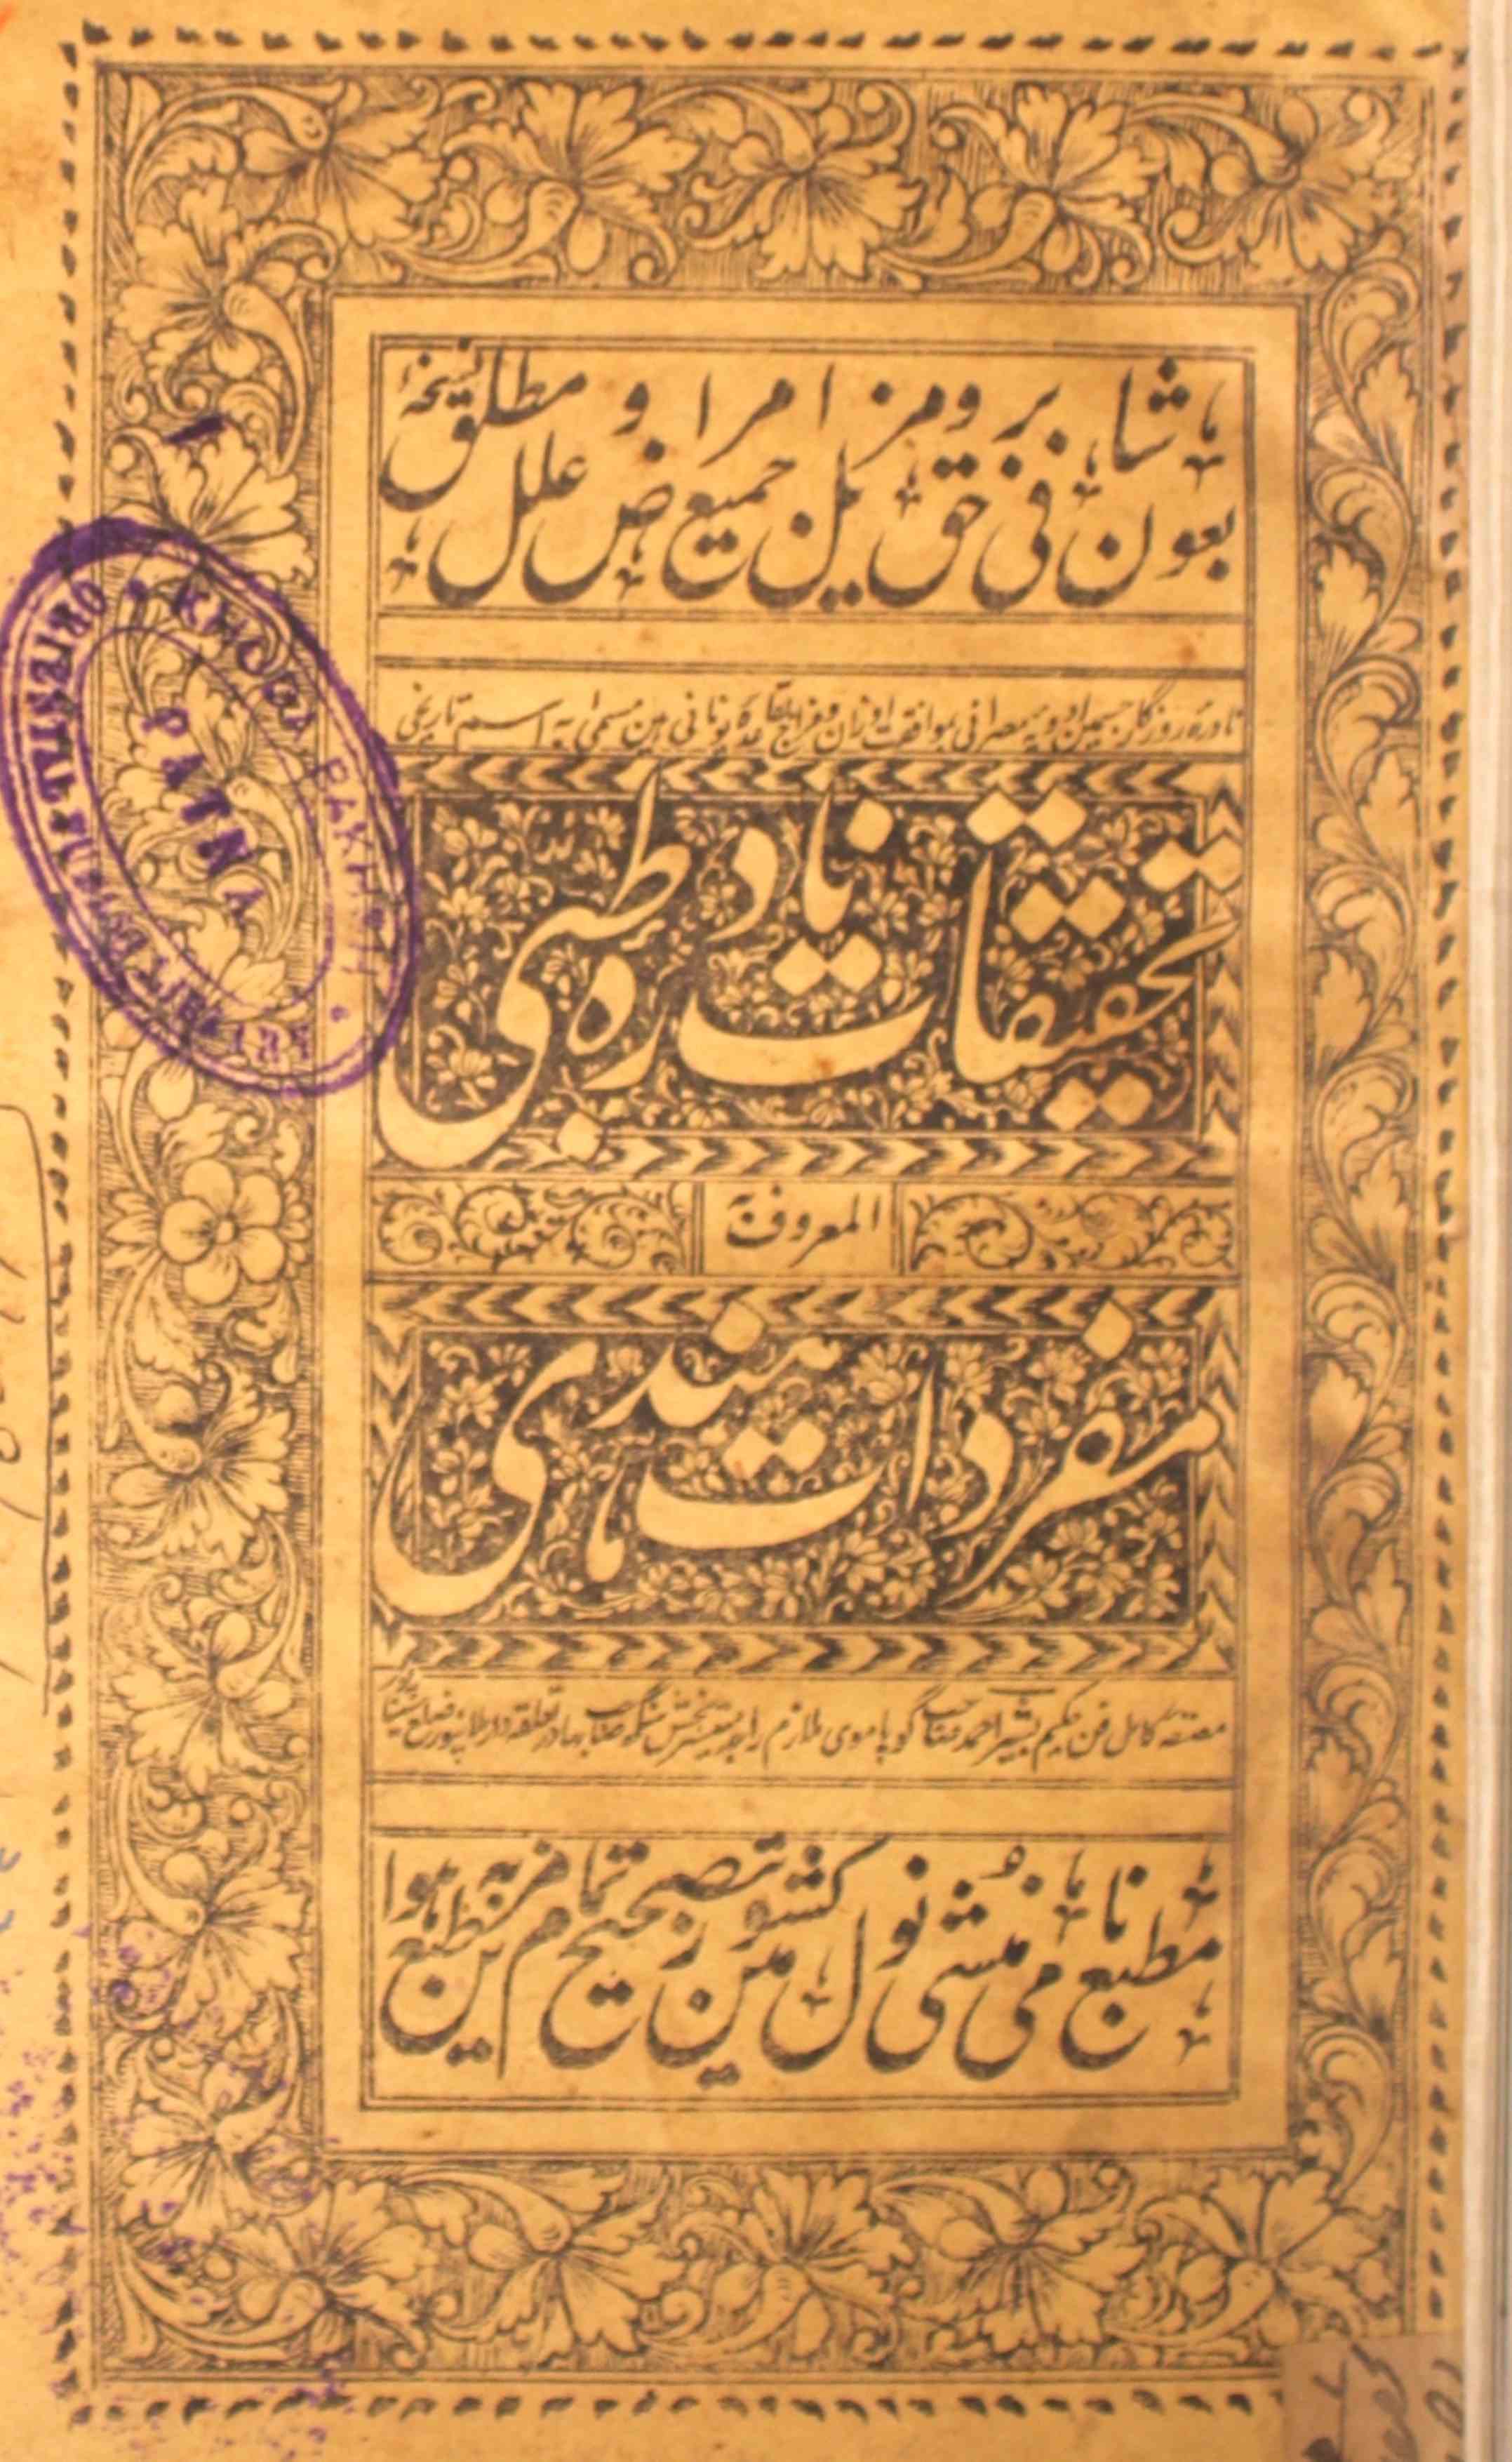 بعون شافی برحق و مزیل امراض جمیع و علل مطلق نسخہ
نادرۂ روزگار جسمین ادویہ مصرانی بموافقت اوزان و مزاج بقاعدۂ یونانی ہین مسمیٰ بہ اسم تاریخی
تحقیقات نادرہ طبی
المعروف بہ
مفردات ہندی
مصنفہ کامل فن حکیم بشیر احمد صاحب گوپاموی ملازم راجہ بخش سنگھ صاحب بہادر تعلقہ دار ضلع سیتاپور
مطبع نامی منشی نولکشور مین بہ تصحیح تمام مزین بہ طبع ہوا
KHODA BAKHSH
ORIENTAL PUBLIC LIBRARY
PATNA